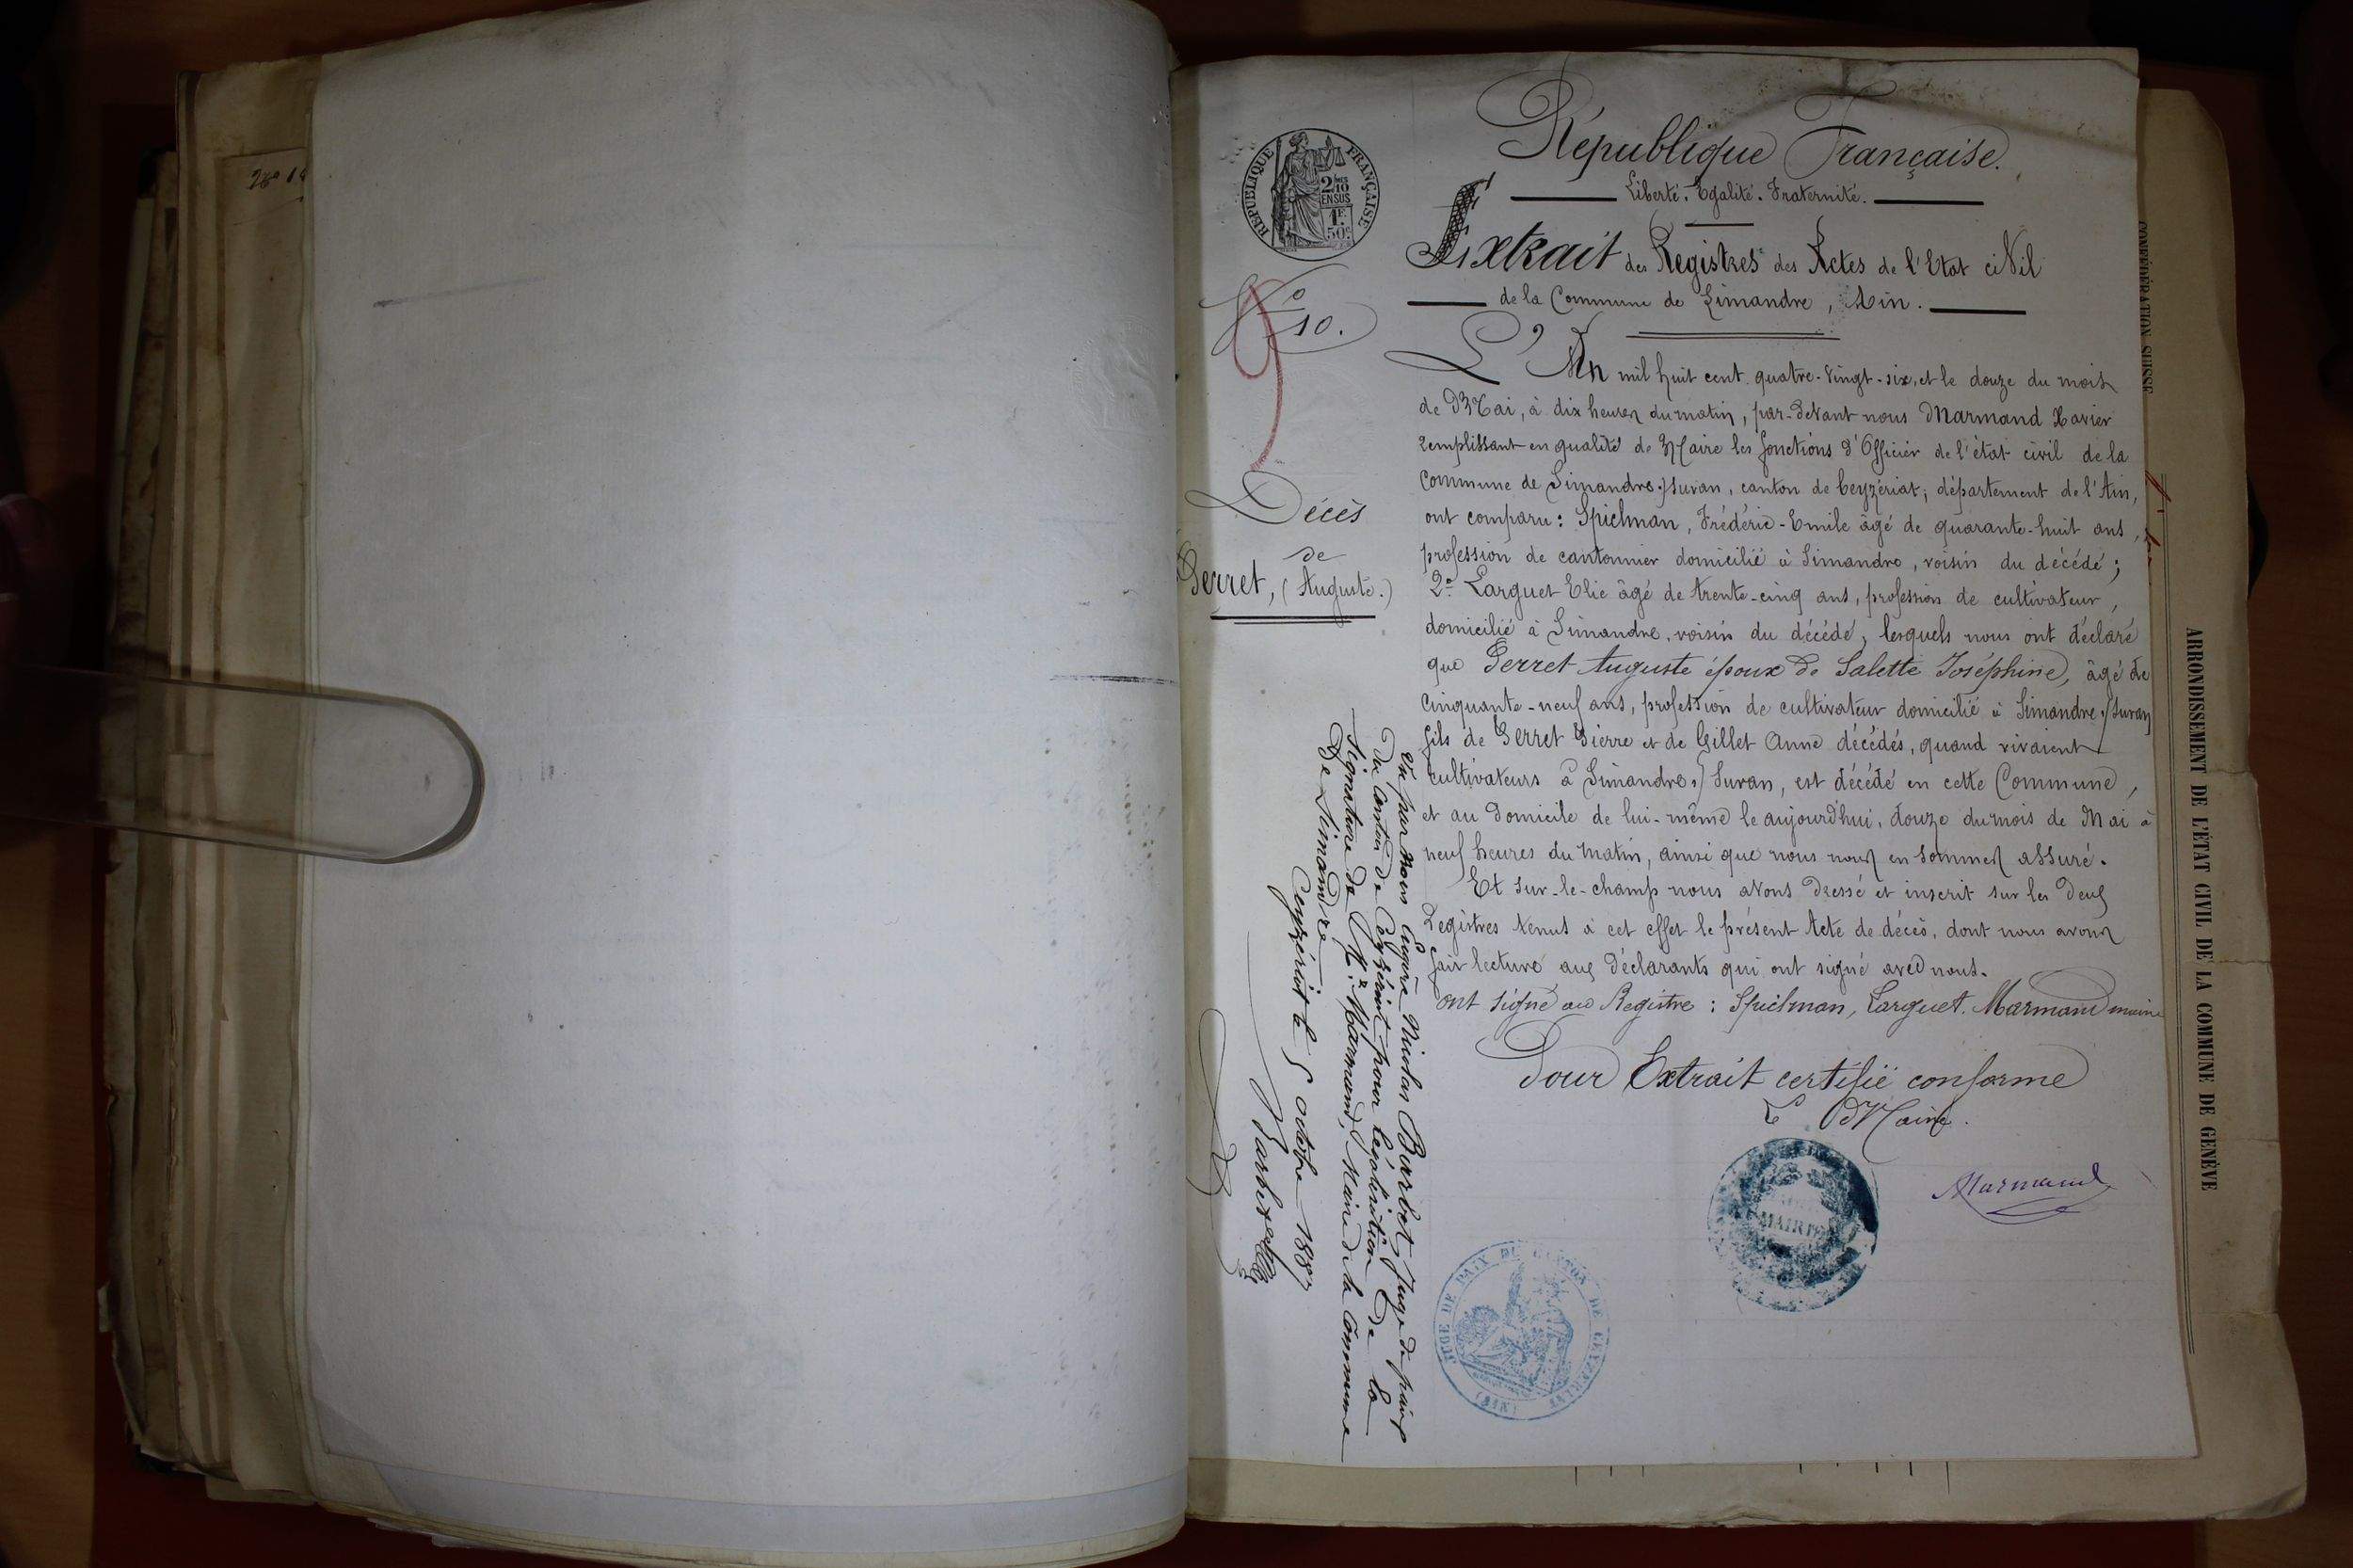 République Française.
Liberté. Egalité. Fraternité.
Extrait des Registres des Actes de l'Etat ciVil
de la Commune de Simandre, Ain.
REPUBLIQUE FRANÇAISE
2/10
EN SUS
1F.
50c.
No 10.
Décès
de
Perret, (Auguste.)
L'An mil huit cent quatre-vingt-six, et le douze du mois
de Mai, à dix heures du matin, par-devant nous Marmand Xavier
remplissant en qualité de Maire les fonctions d'Officier de l'état civil de la
Commune de Simandre s/ Suran, canton de Ceyzériat, département de l'Ain,
ont comparu: Spielman, Frédéric-Emile âgé de quarante-huit ans,
profession de cantonnier domicilié à Simandre, voisin du décédé;
2o Larguet Elie âgé de trente-cinq ans, profession de cultivateur,
domicilié à Simandre, voisin du décédé, lesquels nous ont déclaré
que Perret Auguste époux de Salette Joséphine, âgé de
cinquante-neuf ans, profession de cultivateur domicilié à Simandre s/ Suran
fils de Perret Pierre et de Gillet Anne décédés, quand vivaient
cultivateurs à Simandre s/ Suran, est décédé en cette Commune,
et au domicile de lui-même le aujourd'hui, douze du mois de Mai à
neuf heures du matin, ainsi que nous nous en sommes assuré.
Et sur-le-champ nous avons dressé et inscrit sur les deux
Registres tenus à cet effet le présent Acte de décès, dont nous avons
fait lecture aux déclarants qui ont signé avec nous.
Ont signé au Registre: Spielman, Larguet. Marmand maire
Pour Extrait certifié conforme
Le Maire.
Marmand
MAIRIE
JUGE DE PAIX DU CANTON DE CEYZERIAT (AIN)
Vu par Nous Nicolas Berbet, Juge de paix
du canton de Ceyzériat pour légalisation de la
signature de Mr Marmand, Maire de la Commune
de Simandre
Ceyzériat le 5 octobre 1887
CONFÉDÉRATION SUISSE
ARRONDISSEMENT DE L'ÉTAT CIVIL DE LA COMMUNE DE GENÈVE